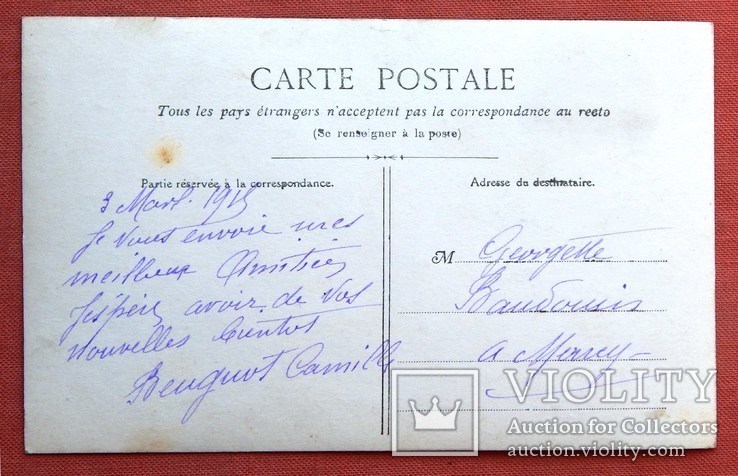 CARTE POSTALE
Tous les pays étrangers n'acceptent pas la correspondance au recto
(Se renseigner à la poste)
Partie réservée à la correspondance.
3 Mars 1915
Je vous envoie mes
meilleux Amitiés
J'éspère avoir de vos
nouvelles bientot
Beuguot Camille
Adresse du destinataire.
M Georgette
Baudouin
a
VIOLITY
Auction for Collectors
auction.violity.com